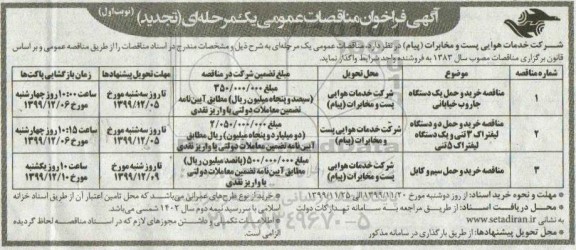 آگهی فراخوان مناقصات عمومی یک مرحله‌ای (تجدید) (نوبت اول)
شرکت خدمات هوایی پست و مخابرات (پیام) در نظر دارد مناقصات عمومی یک مرحله‌ای به شرح ذیل و مشخصات مندرج در اسناد مناقصات را از طریق مناقصه عمومی و بر اساس
قانون برگزاری مناقصات مصوب سال ۱۳۸۳ به فروشنده واجد شرایط واگذار نماید.
شماره مناقصه موضوع محل تحویل مبلغ تضمین شرکت در مناقصه مهلت تحویل پیشنهادها زمان بازگشایی پاکت‌ها
۱ مناقصه خرید و حمل یک دستگاه جاروب خیابانی شرکت خدمات هوایی پست و مخابرات (پیام) مبلغ ۳۵۰/۰۰۰/۰۰۰ (سیصد و پنجاه میلیون ریال) مطابق آیین‌نامه تضمین معاملات دولتی یا واریز نقدی تا روز سه‌شنبه مورخ ۱۳۹۹/۱۲/۰۵ ساعت ۱۰:۰۰ روز چهارشنبه مورخ ۱۳۹۹/۱۲/۰۶
۲ مناقصه خرید و حمل دو دستگاه لیفتراک ۳ تنی و یک دستگاه لیفتراک ۵ تنی شرکت خدمات هوایی پست و مخابرات (پیام) مبلغ ۲/۰۵۰/۰۰۰/۰۰۰ (دو میلیارد و پنجاه میلیون ریال) مطابق آیین نامه تضمین معاملات دولتی یا واریز نقدی تا روز سه‌شنبه مورخ ۱۳۹۹/۱۲/۰۵ ساعت ۱۰:۱۵ روز چهارشنبه مورخ ۱۳۹۹/۱۲/۰۶
۳ مناقصه خرید و حمل سیم و کابل شرکت خدمات هوایی پست و مخابرات (پیام) مبلغ ۵۰۰/۰۰۰/۰۰۰ (پانصد میلیون ریال) مطابق آیین‌نامه تضمین معاملات دولتی یا واریز نقدی تا روز شنبه مورخ ۱۳۹۹/۱۲/۰۹ ساعت ۱۰:۰۰ روز یکشنبه مورخ ۱۳۹۹/۱۲/۱۰
• مهلت و نحوه خرید اسناد: از روز دوشنبه مورخ ۱۳۹۹/۱۱/۲۰ الی ۱۳۹۹/۱۱/۲۵
• محل دریافت اسناد: از طریق مراجعه به سامانه تهدارکات دولت
به نشانی www.setadiran.ir
• محل تحویل پیشنهادها: از طریق بارگذاری در سامانه مذکور
• خرید از نوع طرح‌های عمرانی می‌باشد که محل تامین اعتبار آن از طریق اسناد خزانه
اسلامی با سررسید نیمه دوم سال ۱۴۰۲ شمسی می‌باشد.
• اطلاعات تکمیلی و داشتن مجوزهای لازم که در اسناد مناقصه لحاظ گردیده
الزامی است.